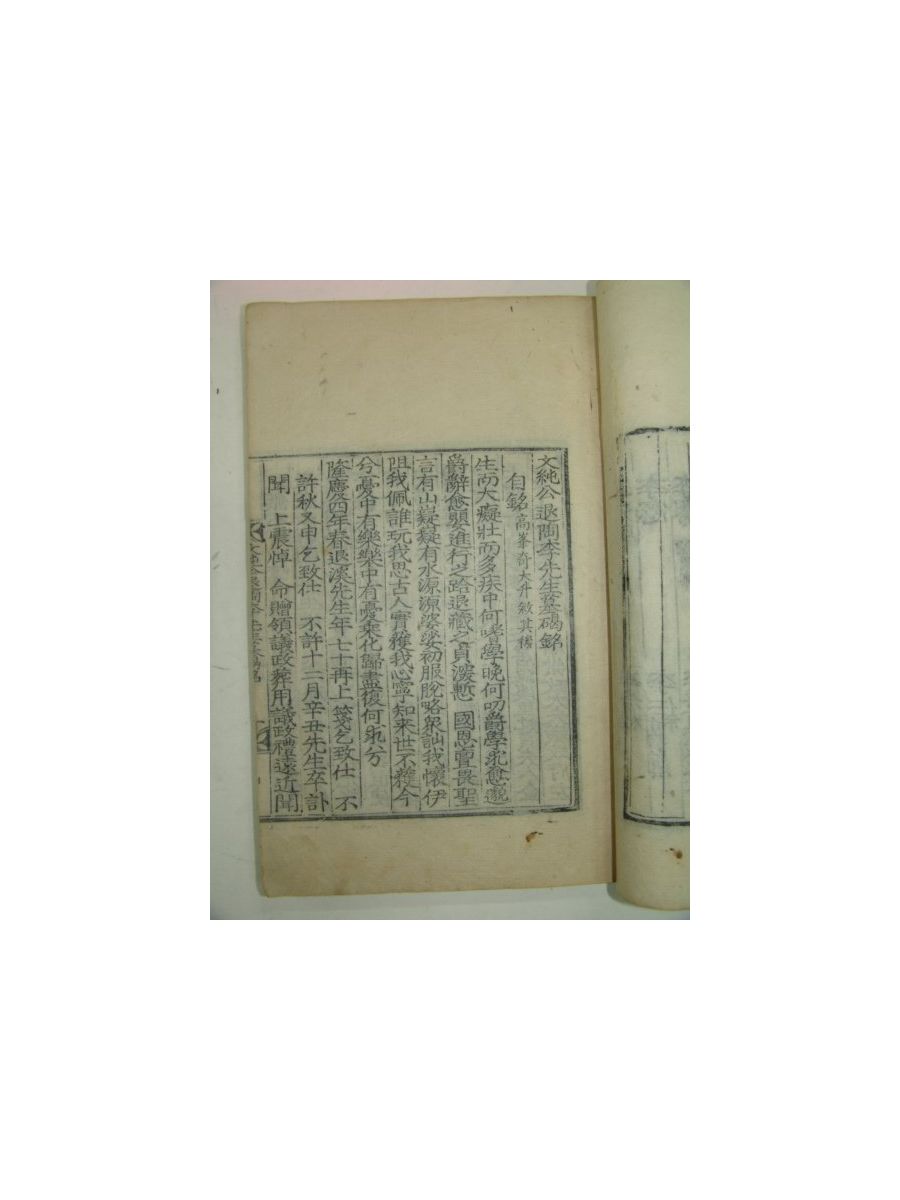 文純公退陶李先生墓碣銘
自銘 高峯奇大升敘其後
生而大癡壯而多疾中何嗜學晚何叨爵學求愈邈
爵辭愈嬰進行之跲退藏之貞深慙 國恩亶畏聖
言有山嶷嶷有水源源婆娑初服脫略衆訕我懷伊
阻我佩誰玩我思古人實獲我心寧知来世不獲今
兮憂中有樂樂中有憂乘化歸盡復何求兮
隆慶四年春退溪先生年七十再上 箋乞致仕 不
許秋又申乞致仕 不許十二月辛丑先生卒訃
聞 上震悼 命贈領議政葬用議政禮遠近聞